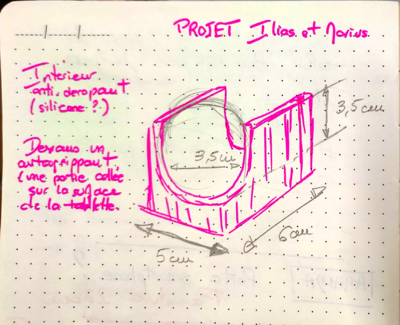 PROJET Ilias et Marius
Intérieur
anti-dérapant
(silicone?)
3,5cm
3,5cm
Dessous un
autogrippant
(une partie collée
sur la surface
de la tablette.
6cm
5cm